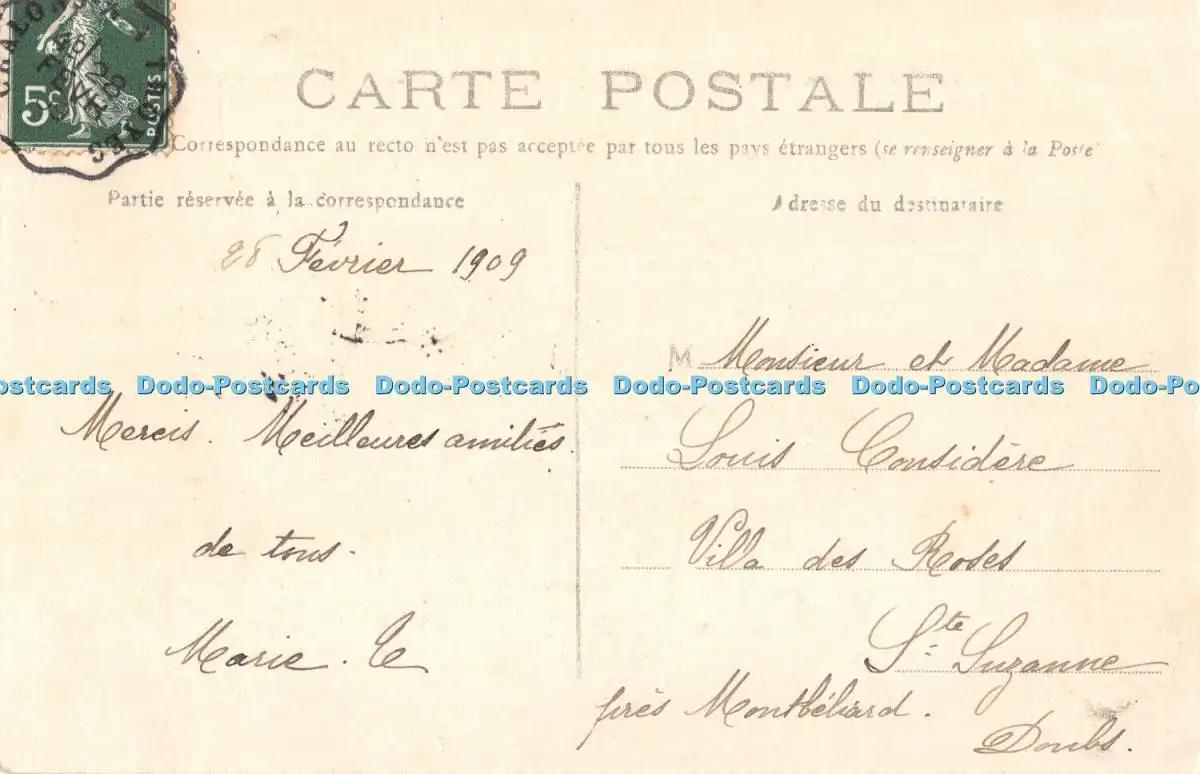 5c
POSTES
CARTE POSTALE
Correspondance au recto n'est pas acceptée par tous les pays étrangers (se renseigner à la Poste
Partie réservée à la correspondance
Adresse du destinataire
28 Février 1909
M Monsieur et Madame
Postcards Dodo-Postcards Dodo-Postcards Dodo-Postcards Dodo-Postcards Dodo-Po
Mercis. Meilleures amitiés.
Louis Considère
de tous.
Villa des Roses
Marie.
Ste Suzanne
près Montbéliard.
Doubs.